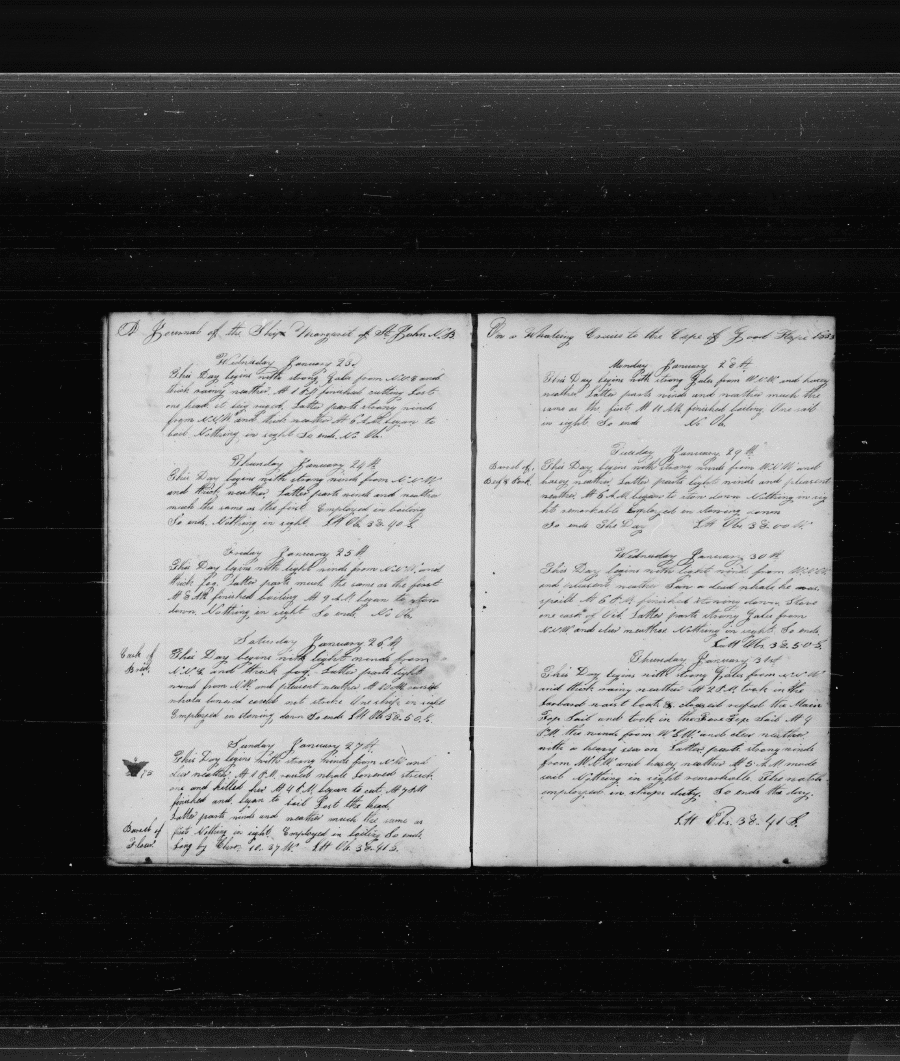 A Journal of the Ship Margaret of St. John N.B.
Wednesday January 23d
This Day begins with strong Gales from N.N.E and
thick rainy weather. At 1 P.M finished cutting Lost
one head it being rugged. Latter parts strong winds
from N.N.W and thick weather At 6 A.M. began to
boil Nothing in sight So ends No Ob.
Thursday January 24th
This Day begins with strong winds from N.N.W
and thick weather. Latter parts winds and weather
much the same as the first. Employed in boiling
So ends. Nothing in sight Latt Ob. 38.40 S.
Friday January 25th
This Day begins with light winds from N.N.W and
thick fog. Latter parts much the same as the first
At 8 A.M. finished boiling At 9 A.M began to stow
down. Nothing in sight So ends No Ob.
Saturday January 26th
Cask of
This Day begins with light winds from
N.N.E and thick fog. Latter parts light
winds from N.W. and pleasent weather At
whales lowered could not strike One ship in sight
Employed in stowing down So ends Latt Ob 38.50 S.
Sunday January 27th
This Day begins with strong winds from N.W and
clear weather At 1 P.M. raised whale lowered struck
75
one and killed him At 4 P.M. began to cut. At 9 P.M
finished and began to boil Lost the head,
Latter parts winds and weather much the same as
Barrel of
first Nothing in sight. Employed in boiling So ends.
Flour
Long by Chro. 10.37 W Latt Ob. 38.41 S.
On a Whaling Cruise to the Cape of Good Hope
Monday January 28th
This Day begins with strong Gales from W.N.W and hazey
weather Latter parts winds and weather much the
same as the first At 11 A.M. finished boiling One sail
in sight So ends No Ob.
Tuesday January 29th
Barrel of
This Day begins with strong winds from W.N.W and
Beef & Pork
hazey weather, Latter parts light winds and pleasent
weather At 5 A.M. began to stow down Nothing in sig
ht remarkable Employed in stowing down
So ends This Day Latt Ob. 38.00
Wednesday January 30th
This Day begins with light winds from
and pleasent weather Saw a dead whale he was
spoilt At 6 P.M finished stowing down Stove
one cask of Oil Latter parts strong Gales from
N.N.W and clear weather Nothing in sight So ends.
Latt Ob. 38.50 S.
Thursday January 31st
This Day begins with strong Gales from N.N.W
and thick rainy weather At 2 P.M. took in the
larboard waist boat closed reefed the Main
Top Sail and took in the Fore Top Sail At 9
P.M. the winds from W.S.W. and clear weather
with a heavy sea on Latter parts strong winds
from and hazey weather At 5 A.M. made
sail Nothing in sight remarkable The watch
employed in ships duty. So ends the day.
Latt Ob. 38.41 S.